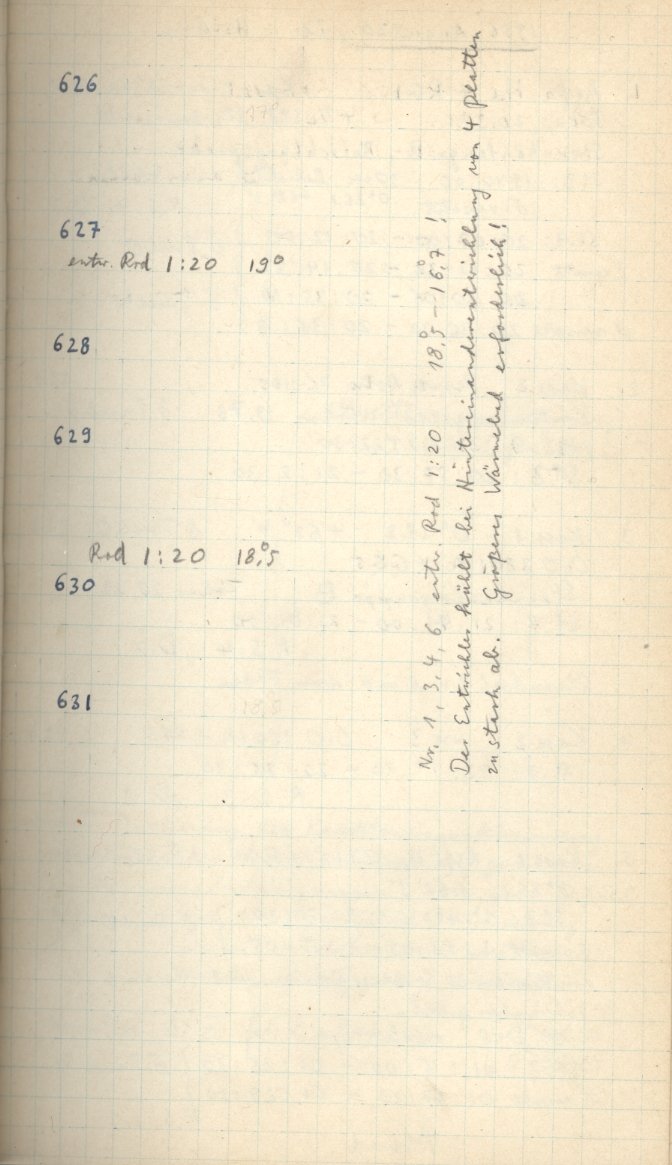 626
627
entw. Rod 1:20 19°
628
629
Rod 1:20 18,°5
630
631
Nr. 1, 3, 4, 6 entw. Rod 1:20 18,°5 – 16,°7!
Der Entwickler kühlt bei Hintereinanderentwicklung von 4 Platten
zu stark ab. Grösseres Wärmebad erforderlich!